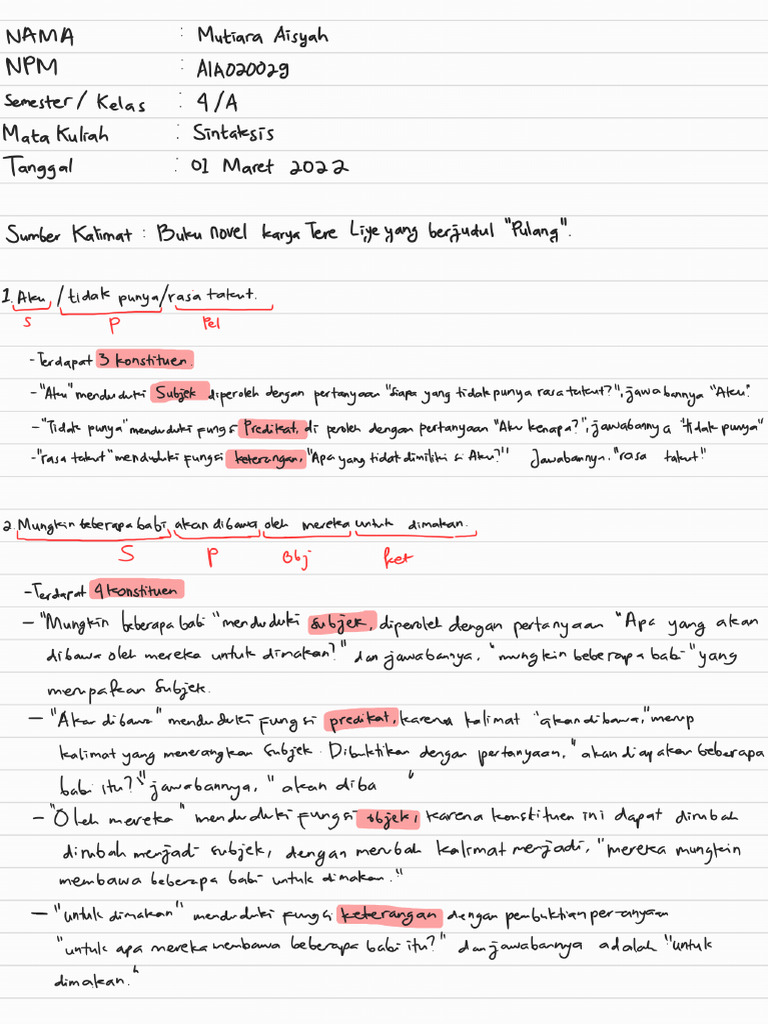 NAMA : Mutiara Aisyah
NPM : A1A020029
Semester / Kelas : 4/A
Mata Kuliah : Sintaksis
Tanggal : 01 Maret 2022
Sumber Kalimat : Buku novel karya Tere Liye yang berjudul "Pulang".
1. Aku / tidak punya / rasa takut.
S P Pel
- Terdapat 3 konstituen.
- "Aku" menduduki Subjek diperoleh dengan pertanyaan "siapa yang tidak punya rasa takut?", jawabannya "Aku".
- "Tidak punya" menduduki fungsi Predikat, di peroleh dengan pertanyaan "Aku kenapa?", jawabannya "tidak punya"
- "rasa takut" menduduki fungsi keterangan, "Apa yang tidak dimiliki si Aku?" Jawabannya, "rasa takut"
2. Mungkin beberapa babi akan dibawa oleh mereka untuk dimakan.
S P Obj ket
- Terdapat 4 konstituen
- "Mungkin beberapa babi" menduduki subjek, diperoleh dengan pertanyaan "Apa yang akan
dibawa oleh mereka untuk dimakan?" dan jawabannya, "mungkin beberapa babi" yang
merupakan Subjek.
- "Akan dibawa" menduduki fungsi predikat, karena kalimat "akan dibawa," merup
kalimat yang menerangkan subjek. Dibuktikan dengan pertanyaan, "akan diapakan beberapa
babi itu?" jawabannya, "akan diba "
- "Oleh mereka" menduduki fungsi objek, karena konstituen ini dapat dirubah
dirubah menjadi subjek, dengan merubah kalimat menjadi, "mereka mungkin
membawa beberapa babi untuk dimakan."
- "untuk dimakan" menduduki fungsi keterangan dengan pembuktian per-anyaan
"untuk apa mereka membawa beberapa babi itu?" dan jawabannya adalah "untuk
dimakan."